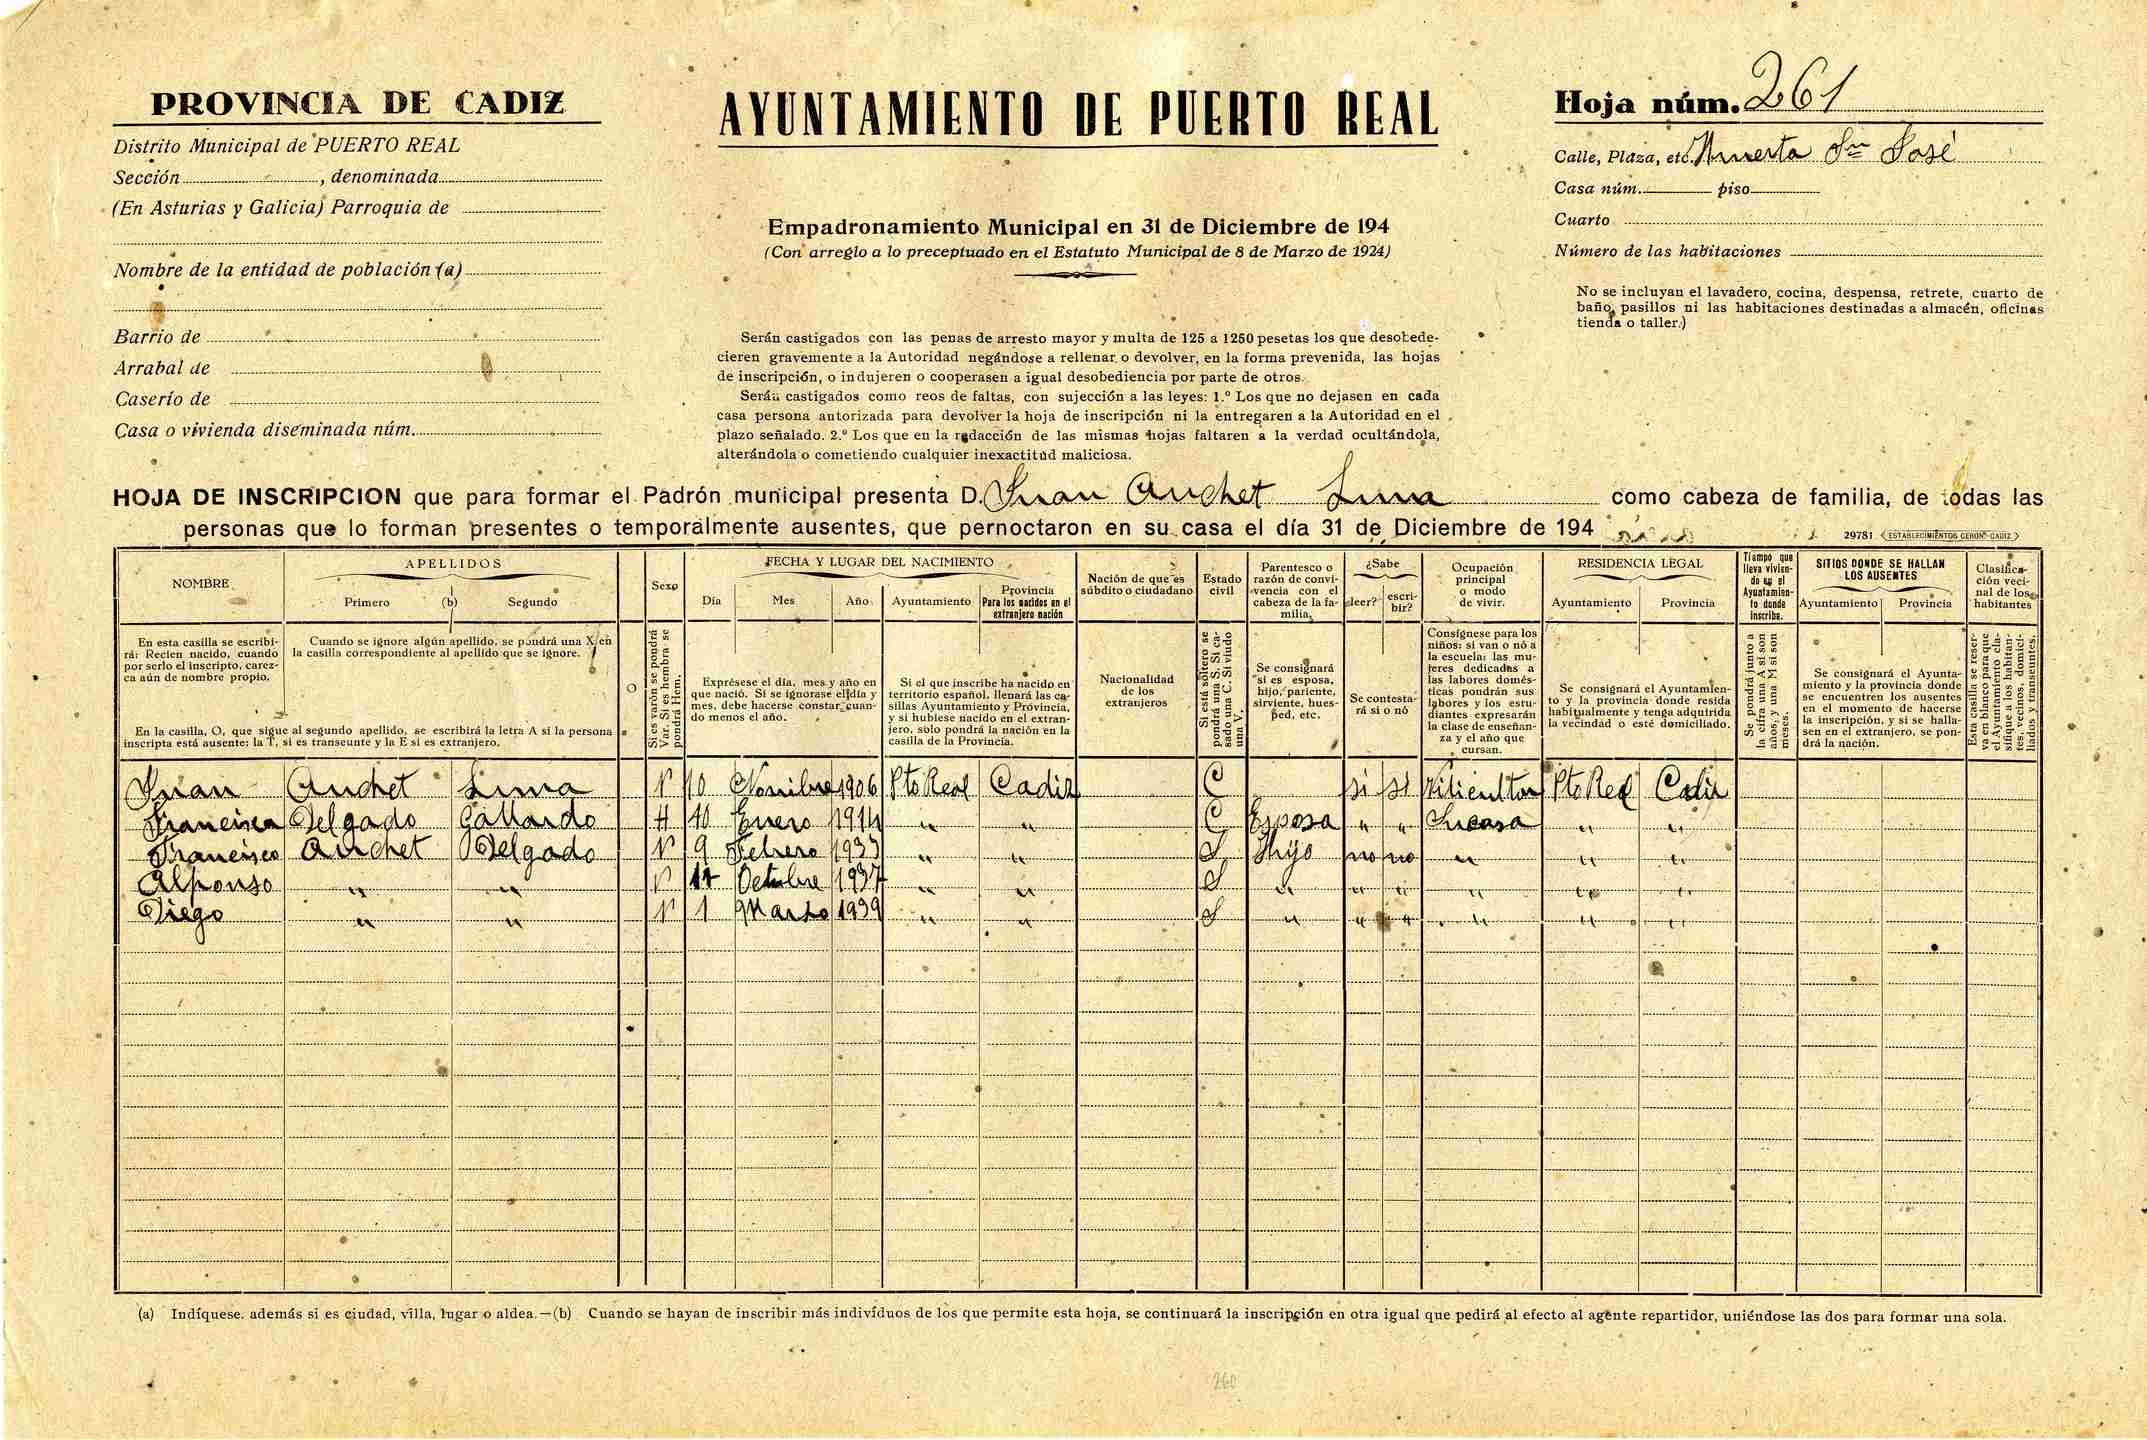 PROVINCIA DE CADIZ
Distrito Municipal de PUERTO REAL
Sección , denominada
(En Asturias y Galicia) Parroquia de
Nombre de la entidad de población (a)
Barrio de
Arrabal de
Caserío de
Casa o vivienda diseminada núm.
AYUNTAMIENTO DE PUERTO REAL
Empadronamiento Municipal en 31 de Diciembre de 194
(Con arreglo a lo preceptuado en el Estatuto Municipal de 8 de Marzo de 1924)
Serán castigados con las penas de arresto mayor y multa de 125 a 1250 pesetas los que desobede-
cieren gravemente a la Autoridad negándose a rellenar o devolver, en la forma prevenida, las hojas
de inscripción, o indujeren o cooperasen a igual desobediencia por parte de otros.
Serán castigados como reos de faltas, con sujección a las leyes: 1.º Los que no dejasen en cada
casa persona autorizada para devolver la hoja de inscripción ni la entregaren a la Autoridad en el
plazo señalado. 2.º Los que en la redacción de las mismas hojas faltaren a la verdad ocultándola,
alterándola o cometiendo cualquier inexactitud maliciosa.
Hoja núm. 261
Calle, Plaza, etc. Huerta Sn José
Casa núm. piso
Cuarto
Número de las habitaciones
No se incluyan el lavadero, cocina, despensa, retrete, cuarto de
baño, pasillos ni las habitaciones destinadas a almacén, oficinas
tienda o taller.)
HOJA DE INSCRIPCION que para formar el Padrón municipal presenta D. Juan Anchet Luna como cabeza de familia, de todas las
personas que lo forman presentes o temporalmente ausentes, que pernoctaron en su casa el día 31 de Diciembre de 194
29781 ESTABLECIMIENTOS CERON-CADIZ
NOMBRE
En esta casilla se escribi-
rá: Recien nacido, cuando
por serlo el inscripto, carez-
ca aún de nombre propio.
APELLIDOS
Primero (b) Segundo
Cuando se ignore algún apellido, se pondrá una X en
la casilla correspondiente al apellido que se ignore.
En la casilla, O, que sigue al segundo apellido, se escribirá la letra A si la persona
inscripta está ausente: la T, si es transeunte y la E si es extranjero.
O
Sexo
Si es varón se pondrá
Var. Si es hembra se
pondrá Hem.
FECHA Y LUGAR DEL NACIMIENTO
Día Mes Año Ayuntamiento
Provincia
Para los nacidos en el
extranjero nación
Exprésese el día, mes y año en
que nació. Si se ignorase el día y
mes, debe hacerse constar cuan-
do menos el año.
Si el que inscribe ha nacido en
territorio español, llenará las ca-
sillas Ayuntamiento y Provincia,
y si hubiese nacido en el extran-
jero, solo pondrá la nación en la
casilla de la Provincia.
Nación de que es
súbdito o ciudadano
Nacionalidad
de los
extranjeros
Estado
civil
Si está soltero se
pondrá una S. Si ca-
sado una C. Si viudo
una V.
Parentesco o
razón de convi-
vencia con el
cabeza de la fa-
milia.
Se consignará
si es esposa,
hijo, pariente,
sirviente, hues-
ped, etc.
¿Sabe
leer? escri-
bir?
Se contesta-
rá sí o nó
Ocupación
principal
o modo
de vivir.
Consígnese para los
niños: si van o nó a
la escuela: las mu-
jeres dedicadas a
las labores domés-
ticas pondrán sus
labores y los estu-
diantes expresarán
la clase de enseñan-
za y el año que
cursan.
RESIDENCIA LEGAL
Ayuntamiento Provincia
Se consignará el Ayuntamien-
to y la provincia donde resida
habitualmente y tenga adquirida
la vecindad o esté domiciliado.
Tiempo que
lleva vivien-
do en el
Ayuntamien-
to donde
inscribe.
Se pondrá junto a
la cifra una A si son
años, y una M si son
meses.
SITIOS DONDE SE HALLAN
LOS AUSENTES
Ayuntamiento Provincia
Se consignará el Ayunta-
miento y la provincia donde
se encuentren los ausentes
en el momento de hacerse
la inscripción, y si se halla-
sen en el extranjero, se pon-
drá la nación.
Clasifica-
ción veci-
nal de los
habitantes
Esta casilla se reser-
va en blanco para que
el Ayuntamiento cla-
sifique a los habitan-
tes, vecinos, domici-
liados y transeuntes.
Juan Anchet Luna V 10 Novibre 1906 Pto Real Cadiz C si si Viticultor Pto Real Cadiz
Francisca Delgado Gallardo H 10 Enero 1914 " " C Esposa " " Su casa " "
Francisco Anchet Delgado V 9 Febrero 1933 " " S Hijo no no " " "
Alfonso " " V 14 Octubre 1937 " " S " " " " " "
Diego " " V 1 Marzo 1939 " " S " " " " " "
(a) Indíquese. además si es ciudad, villa, lugar o aldea.—(b) Cuando se hayan de inscribir más individuos de los que permite esta hoja, se continuará la inscripción en otra igual que pedirá al efecto al agente repartidor, uniéndose las dos para formar una sola.
260